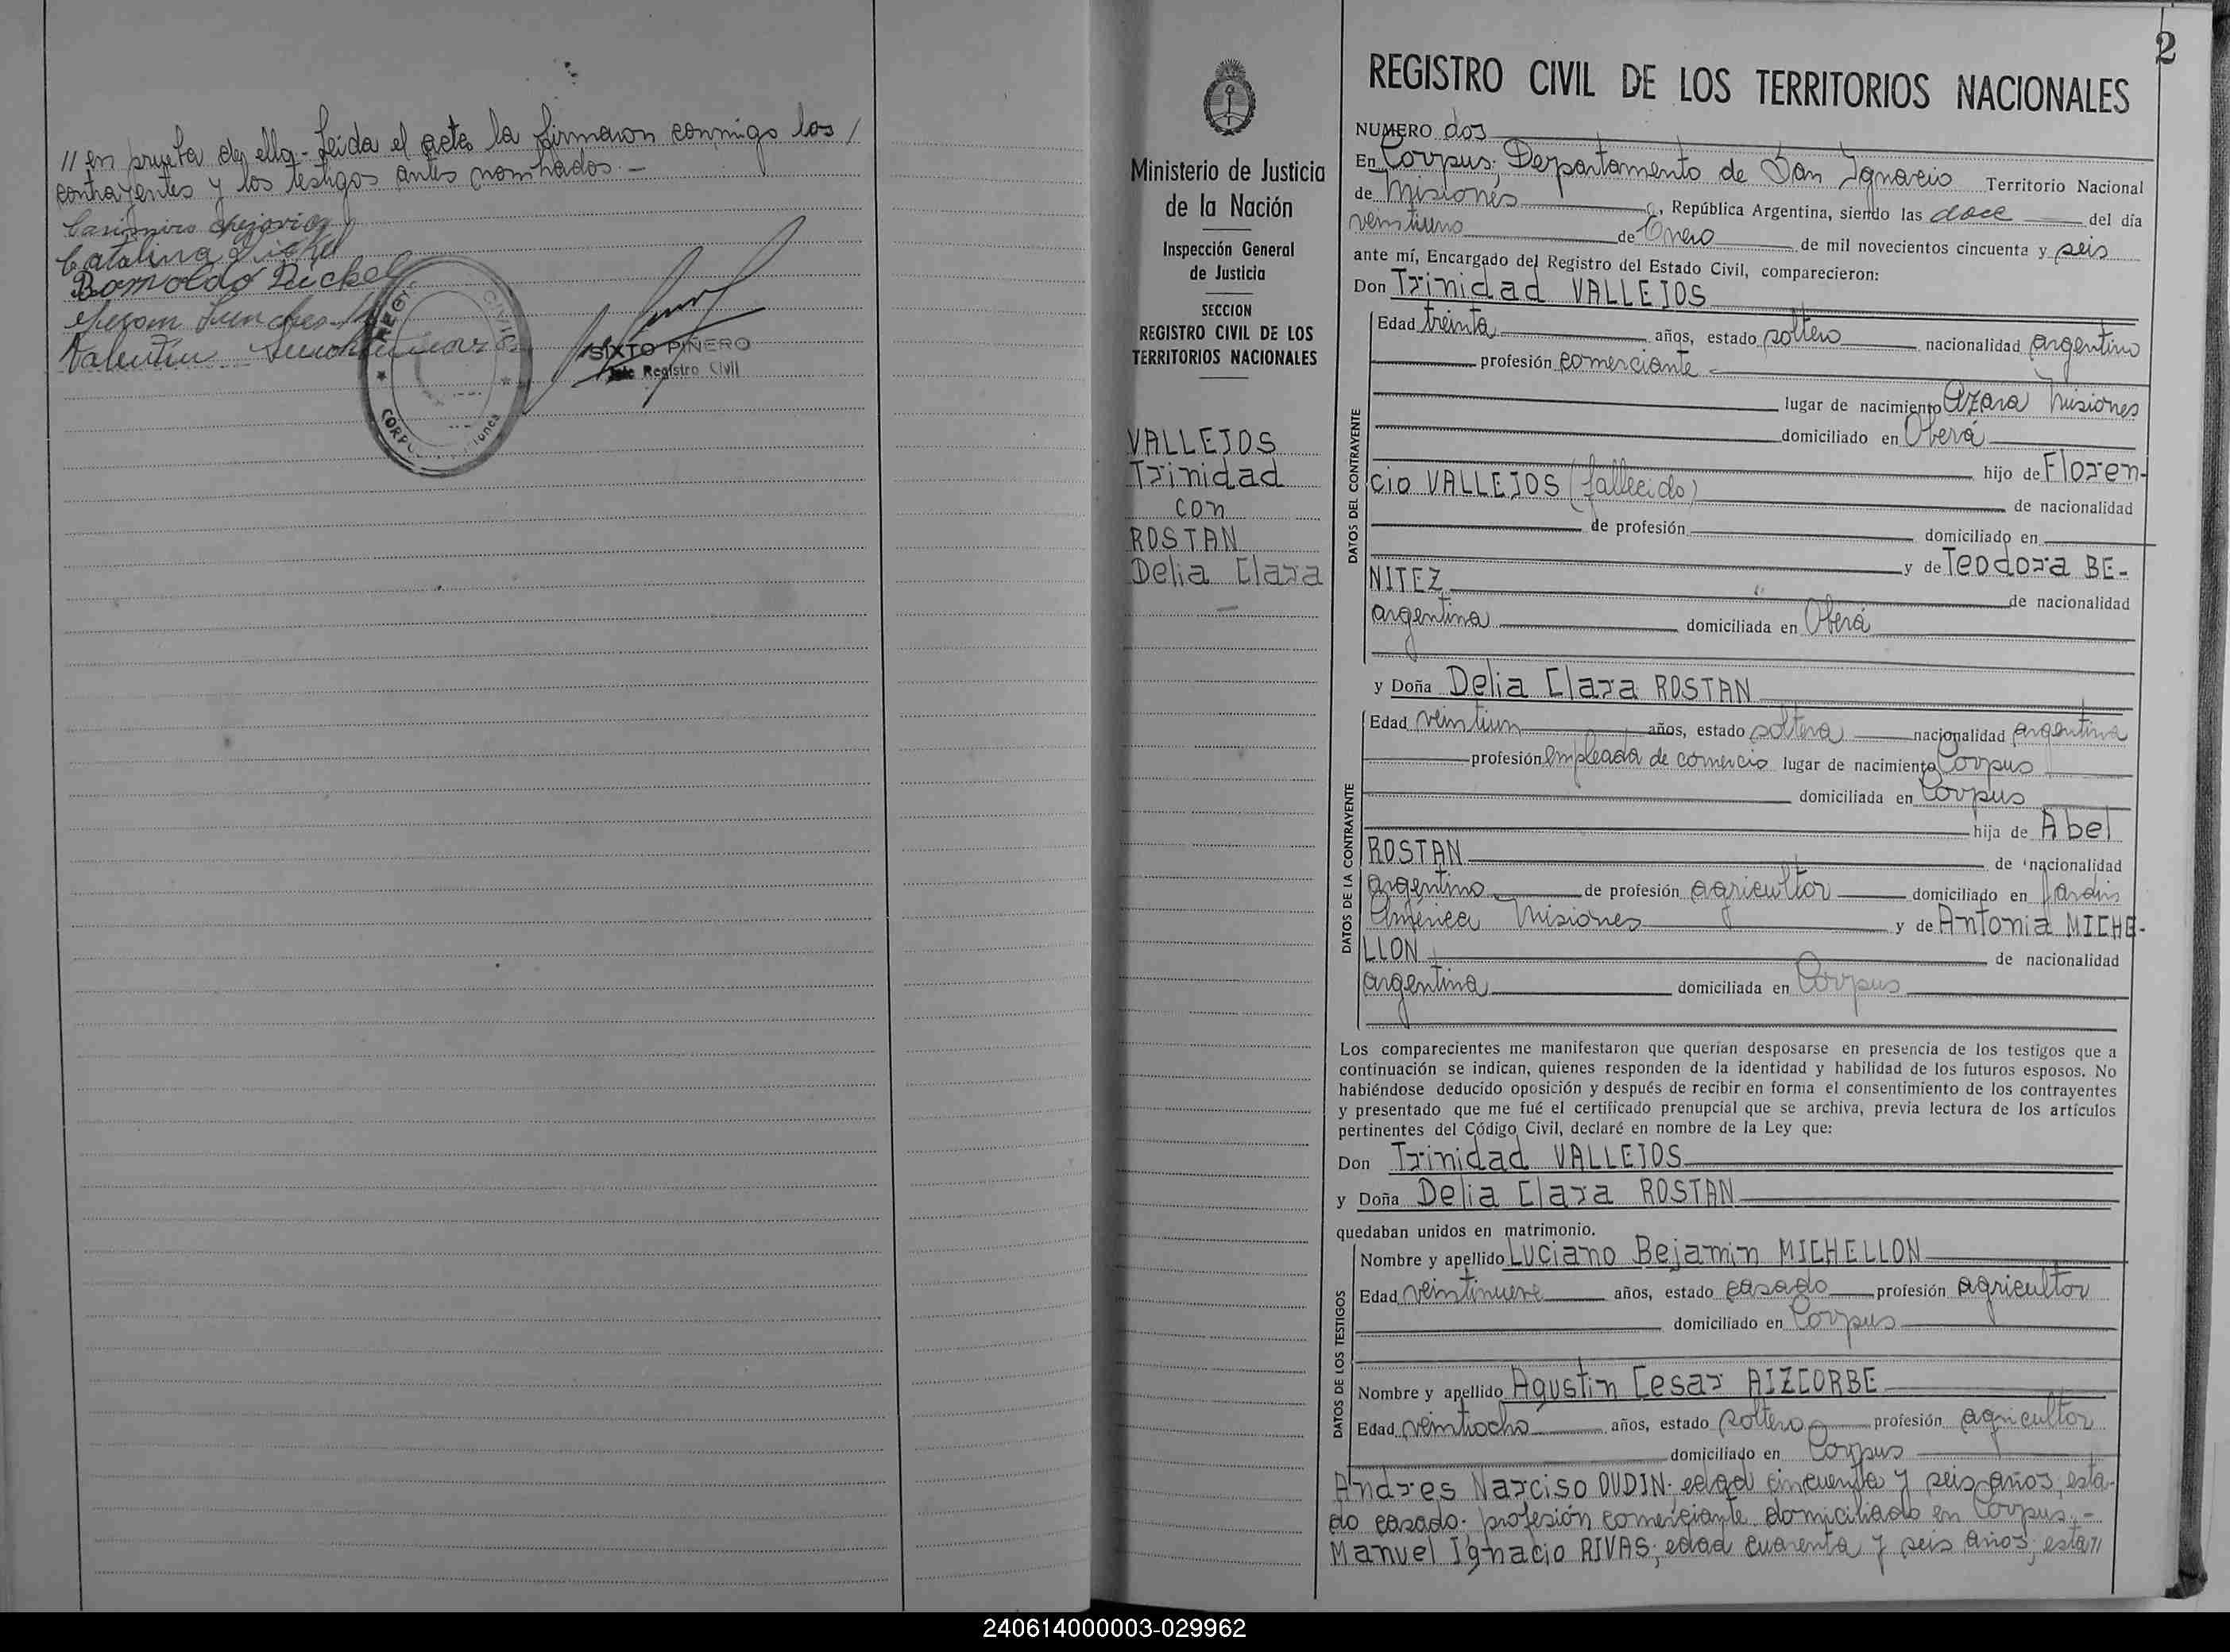 // en prueba de ello - Leida el acta la firmaron conmigo los /
contrayentes y los testigos antes nombrados. -
Romoldo Dickel
Valentin
SIXTO PIÑERO
Jefe Registro Civil
2
Ministerio de Justicia
de la Nación
Inspección General
de Justicia
SECCION
REGISTRO CIVIL DE LOS
TERRITORIOS NACIONALES
VALLEJOS
Trinidad
con
ROSTAN
Delia Clara
REGISTRO CIVIL DE LOS TERRITORIOS NACIONALES
NUMERO dos
En Corpus; Departamento de San Ignacio Territorio Nacional
de Misiones, República Argentina, siendo las doce del día
veintiuno de Enero de mil novecientos cincuenta y seis
ante mí, Encargado del Registro del Estado Civil, comparecieron:
Don Trinidad VALLEJOS
DATOS DEL CONTRAYENTE
Edad treinta años, estado soltero nacionalidad argentino
profesión comerciante -
lugar de nacimiento Azara Misiones
domiciliado en Oberá
hijo de Floren-
cio VALLEJOS (fallecido)
de nacionalidad
de profesión domiciliado en
y de Teodora BE-
NITEZ
de nacionalidad
argentina domiciliada en Oberá
y Doña Delia Clara ROSTAN
DATOS DE LA CONTRAYENTE
Edad veintiun años, estado soltera nacionalidad argentina
profesión empleada de comercio lugar de nacimiento Corpus
domiciliada en Corpus
hija de Abel
ROSTAN
de nacionalidad
argentino de profesión agricultor domiciliado en Jardin
América Misiones y de Antonia MICHE-
LLON
de nacionalidad
argentina domiciliada en Corpus
Los comparecientes me manifestaron que querían desposarse en presencia de los testigos que a
continuación se indican, quienes responden de la identidad y habilidad de los futuros esposos. No
habiéndose deducido oposición y después de recibir en forma el consentimiento de los contrayentes
y presentado que me fué el certificado prenupcial que se archiva, previa lectura de los artículos
pertinentes del Código Civil, declaré en nombre de la Ley que:
Don Trinidad VALLEJOS
y Doña Delia Clara ROSTAN
quedaban unidos en matrimonio.
DATOS DE LOS TESTIGOS
Nombre y apellido Luciano Bejamin MICHELLON
Edad veintinueve años, estado casado profesión agricultor
domiciliado en Corpus
Nombre y apellido Agustin Cesar AIZCORBE
Edad veintiocho años, estado soltero profesión agricultor
domiciliado en Corpus
Andres Narciso OUDIN; edad cincuenta y seis años; esta-
do casado. profesión comerciante domiciliado en Corpus. -
Manuel Ignacio RIVAS; edad cuarenta y seis años; esta//
240614000003-029962